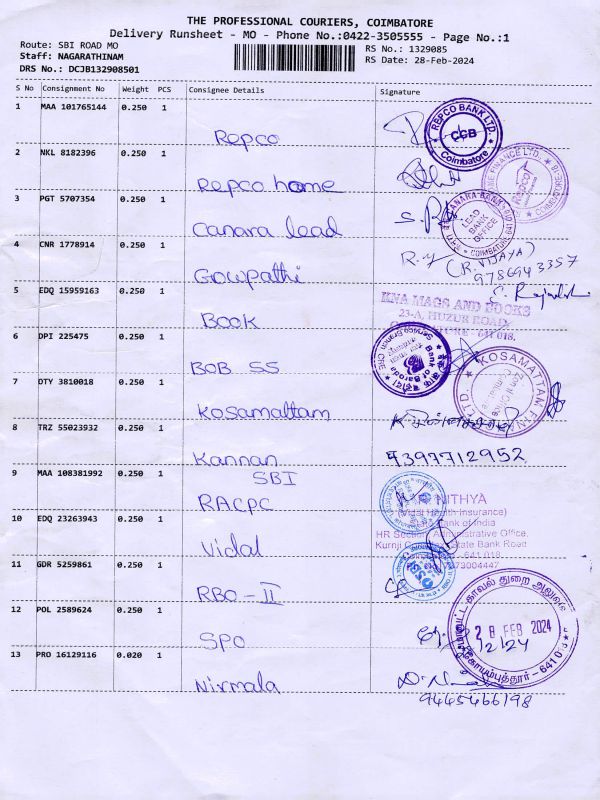 THE PROFESSIONAL COURIERS, COIMBATORE
Delivery Runsheet - MO - Phone No.:0422-3505555 - Page No.:1
Route: SBI ROAD MO
RS No.: 1329085
Staff: NAGARATHINAM
RS Date: 28-Feb-2024
DRS No.: DCJB132908501
S No Consignment No Weight PCS Consignee Details Signature
1 MAA 101765144 0.250 1
Repco
REPCO BANK LTD. CCB Coimbatore
2 NKL 8182396 0.250 1
Repco home
FINANCE LTD.
3 PGT 5707354 0.250 1
Canara lead
CANARA BANK LEAD BANK OFFICE COIMBATORE
4 CNR 1778914 0.250 1
Gowpathi
(R. VIJAYA)
9786943357
5 EDQ 15959163 0.250 1
Book
KNA MAGS AND BOOKS
23-A, HUZUR ROAD,
641 018.
6 DPI 225475 0.250 1
BOB SS
Bank of Baroda
7 OTY 3810018 0.250 1
Kosamattam
KOSAMATTAM FINA LTD.
8 TRZ 55023932 0.250 1
Kannan
9397712952
9 MAA 108381992 0.250 1
SBI
RACPC
10 EDQ 23263943 0.250 1
Vidal
NITHYA
(Vidal Health Insurance)
Bank of India
HR Section, Administrative Office,
State Bank Road
641 018
11 GDR 5259861 0.250 1
RBO - II
12 POL 2589624 0.250 1
SPO
28 FEB 2024
13 PRO 16129116 0.020 1
Nirmala
9445466198